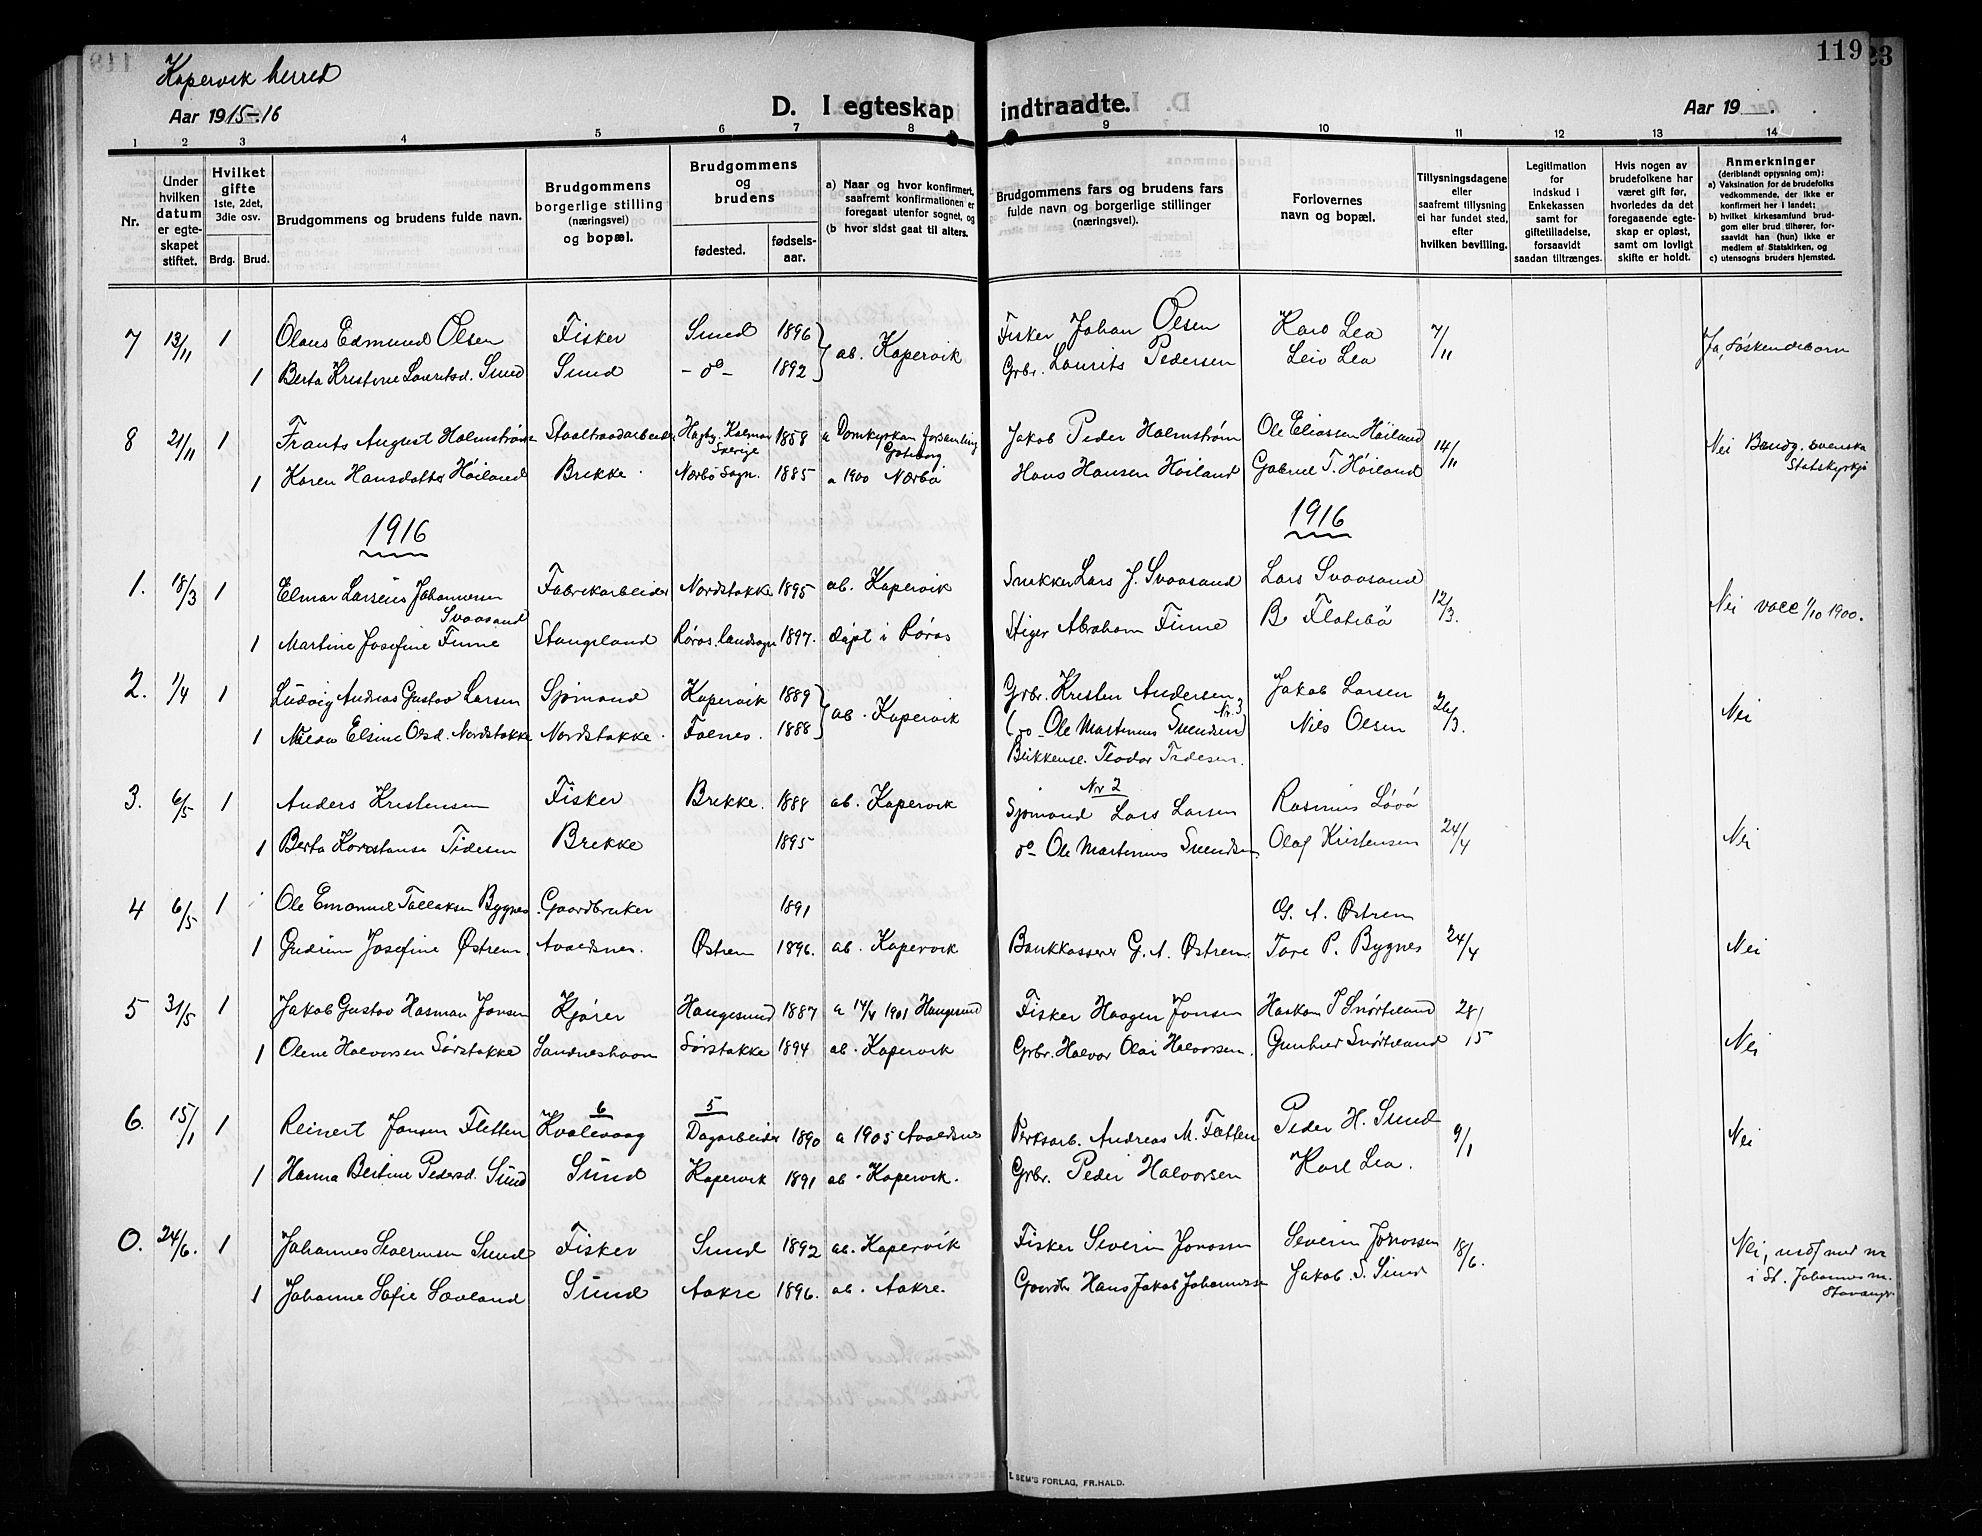 Kopervik herred
119
23
Aar 1915-16
D. I egteskap indtraadte.
Aar 19
1 2 3 4 5 6 7 8 9 10 11 12 13 14
Nr.
Under hvilken datum er egteskapet stiftet.
Hvilket gifte 1ste, 2det, 3die osv.
Brdg. Brud.
Brudgommens og brudens fulde navn.
Brudgommens borgerlige stilling (næringsvei) og bopæl.
Brudgommens og brudens
fødested.
fødsels-aar.
a) Naar og hvor konfirmert, saafremt konfirmationen er foregaat utenfor sognet, og
(b hvor sidst gaat til alters.
Brudgommens fars og brudens fars fulde navn og borgerlige stillinger (næringsvei).
Forlovernes navn og bopæl.
Tillysningsdagene eller saafremt tillysning ei har fundet sted, efter hvilken bevilling.
Legitimation for indskud i Enkekassen samt for giftetilladelse, forsaavidt saadan tiltrænges.
Hvis nogen av brudefolkene har været gift før, hvorledes da det foregaaende egteskap er opløst, samt om lovligt skifte er holdt.
Anmerkninger (deriblandt opysning om):
a) Vaksination for de brudefolks vedkommende, der ikke er konfirmert her i landet;
b) hvilket kirkesamfund brudgom eller brud tilhører, forsaavidt han (hun) ikke er medlem av Statskirken, og
c) utensogns bruders hjemsted.
7 13/11 1 Olaus Edmund Olsen Fisker Sund 1896 ab. Kopervik Fisker Johan Olsen Karo Lea 7/11 Ja, Søskendebarn
1 Berta Kristine Lauritsd. Sund Sund - do - 1892 Grbr. Laurits Pedersen Leiv Lea
8 21/11 1 Frants August Holmstrøm Staaltraadarbeider Hagby, Kalmar Sverige 1858 a Domkyrkan forsamling Göteborg Jakob Peder Holmstrøm Ole Eliassen Höiland 14/11 Nei Brudg. svenska Statskyrkje
1 Karen Hansdatter Höiland Brekke. Nærbö Sogn. 1885 a 1900 Nærbö Hans Hansen Höiland Gabriel T. Höiland
1916 1916
1. 18/3 1 Elmar Larsens Johannessen Svaasand Fabrikarbeider Nordstokke 1895 ab. Kopervik Snekker Lars J. Svaasand Lars Svaasand 12/3. Nei vacc 1/10 1900.
1 Martine Josefine Finne Stangeland Röros landsogn 1897. døpt i Röros Stiger Abraham Finne B. Flatebö
2. 1/4 1 Ludvig Andreas Gustav Larsen Sjömand Kopervik 1889 ab. Kopervik Grbr. Kristen Andersen Nr. 3 Jakob Larsen 26/3. Nei
1 Elsine Olsd. Nordstokke Nordstokke. Fosnes. 1888 (do Ole Martinus Svendsen) Nils Olsen
Teodor Tidesen.
3. 6/5 1 Anders Kristensen Fisker Brekke. 1888 ab. Kopervik Nr 2 Sjömand Lars Larsen Rasmus Lövö 24/4 Nei
1 Berta Konstanse Tidesen Brekke 1895 do Ole Martinus Svendsen Olaf Kristensen
4 6/5 1 Ole Emanuel Tallaksen Bygnes Gaardbruker 1891 G. A. Østrem 24/4 Nei
1 Gudrun Josefine Østrem. Avaldsnes. Østrem 1896. ab. Kopervik Bankkasserer G. A. Østrem. Tore P. Bygnes
5 31/5 1 Jakob Gustav Hasman Jonsen Kjører Haugesund 1887 a 14/4 1901 Haugesund Fisker Haagen Jonsen Haakon P Snørteland 28/5 Nei
1 Olene Halvorsen Sörstokke Sandneshavn Sörstokke 1894 ab. Kopervik Grbr. Halvor Olai Halvorsen. Gunhver Snørteland
6. 15/1 1 Reinert Jonsen Fletten 6 Kvalevaag 5 Dagarbeider 1890 a 1905 Avaldsnes Andreas M. Fletten Peder H. Sund 9/1 Nei
1 Hanna Bertine Pedersd. Sund Sund Kopervik 1891 ab. Kopervik. Grbr. Peder Halvorsen Karl Lea.
0. 24/6. 1 Johannes Severinsen Sund Fisker Sund 1892 ab. Kopervik Fisker Severin Jonassen Severin Jonassen 18/6. Nei,
1 Johanne Sofie Sævland Sund Aakre 1896. ab. Aakre. Gaardbr Hans Jakob Johannessen Jakob S. Sund i St. Johannes m. Stavanger
SEM'S FORLAG, FR.HALD.